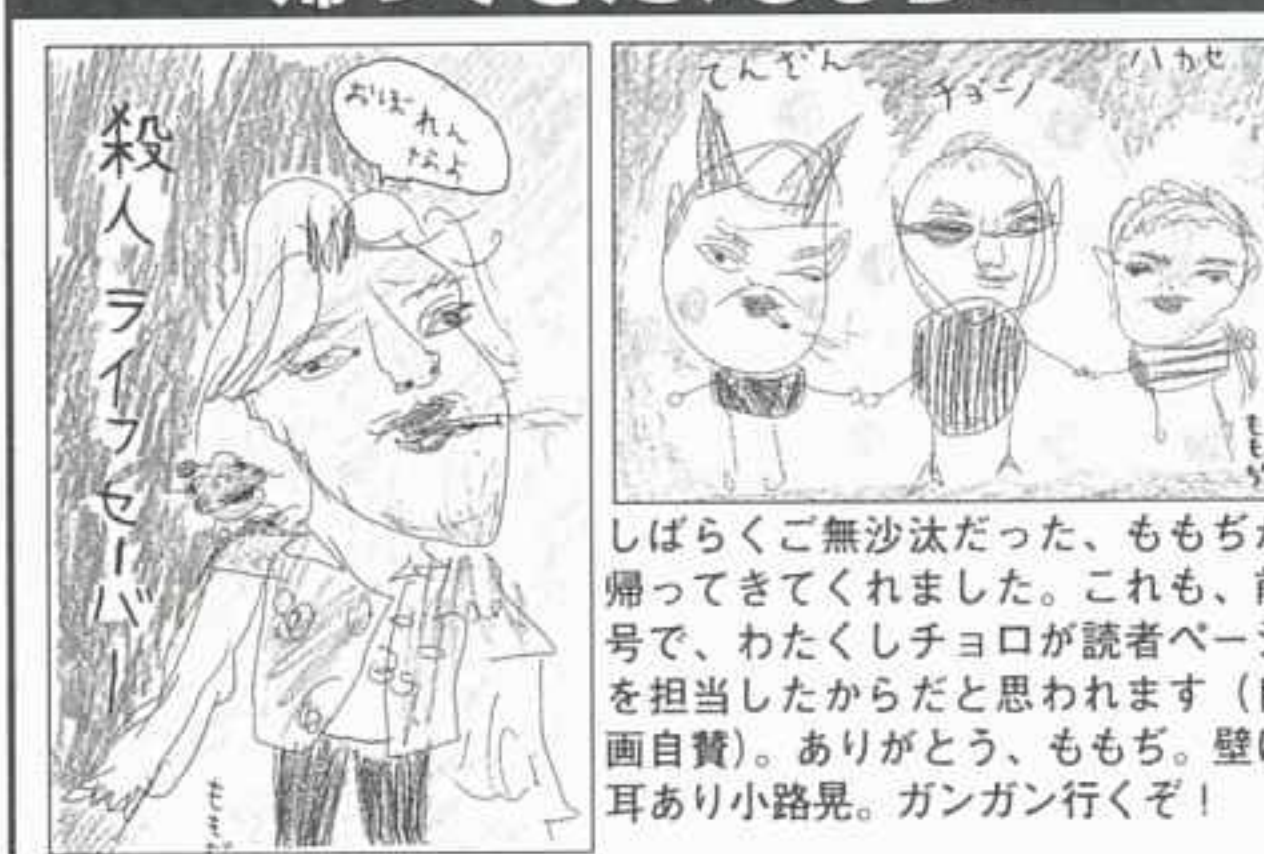 殺人ライフセーバー
おぼれん
なよ
ももぢ
てんざん
チョーノ
ハカセ
ももぢ
しばらくご無沙汰だった、ももぢ
帰ってきてくれました。これも、
号で、わたくしチョロが読者ペー
を担当したからだと思われます（
画自賛)。ありがとう、ももぢ。壁
耳あり小路晃。ガンガン行くぞ！